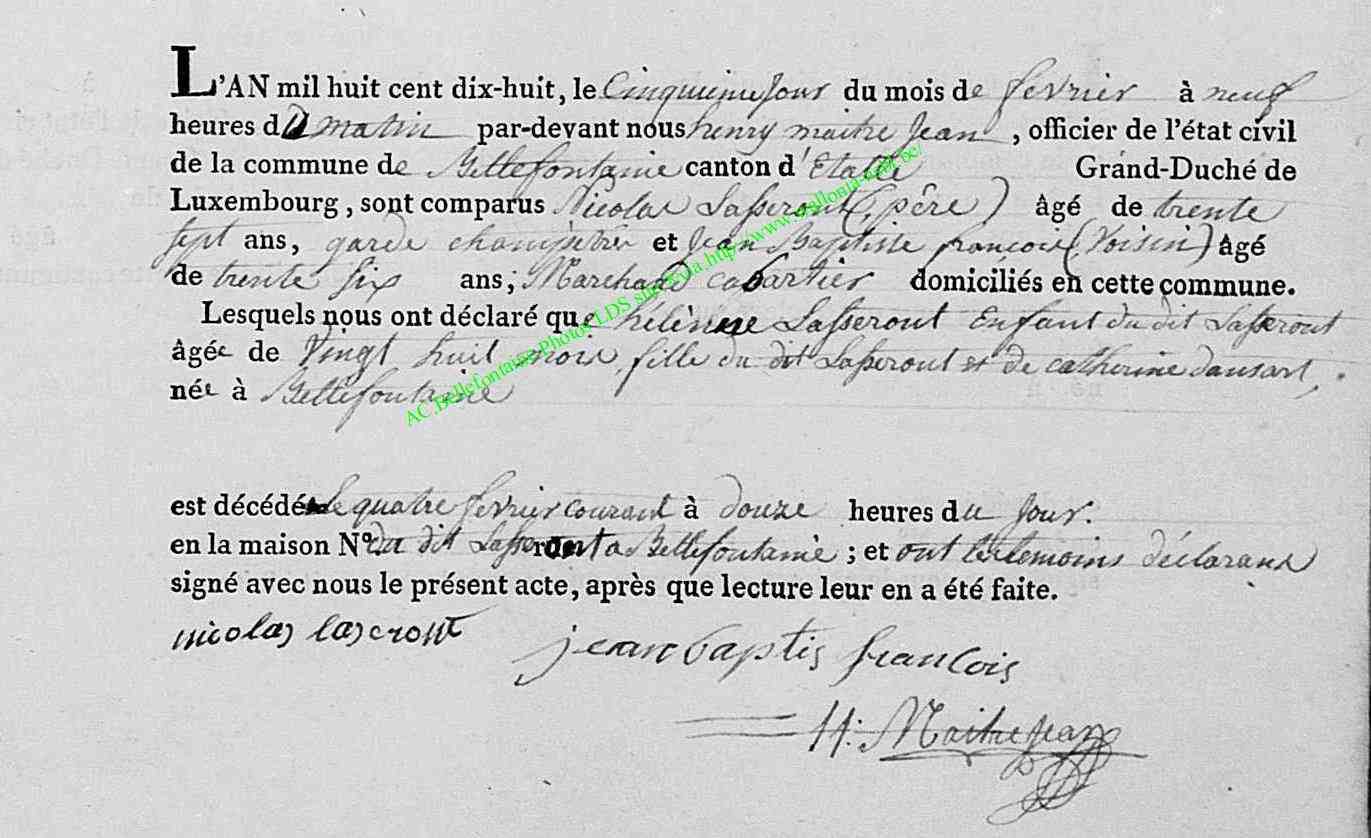 L'AN mil huit cent dix-huit, le Cinquieme Jour du mois de fevrier à neuf
heures du matin par-devant nous henry maitre Jean, officier de l'état civil
de la commune de Bellefontaine canton d'Etalle Grand-Duché de
Luxembourg, sont comparus Nicolas Lasseront (père) âgé de trente
sept ans, garde champetre et Jean Baptiste françois (Voisin) âgé
de trente six ans; Marchand cabartier domiciliés en cette commune.
Lesquels nous ont déclaré que hélènne Lasserout Enfant du dit Lasserout
âgée de Vingt huit mois, fille du dit Lasserout et de catherine dausart,
née à Bellefontaine
est décédée le quatre fevrier courant à douze heures du Jour.
en la maison N° du dit Lasseront a Bellefontaine; et ont les temoins déclarans
signé avec nous le présent acte, après que lecture leur en a été faite.
nicolas lascrout
jean baptis francois
H: Maitrejean
AC Bellefontaine Photos LDS sur geneta http://www.wallonia-asbl.be/